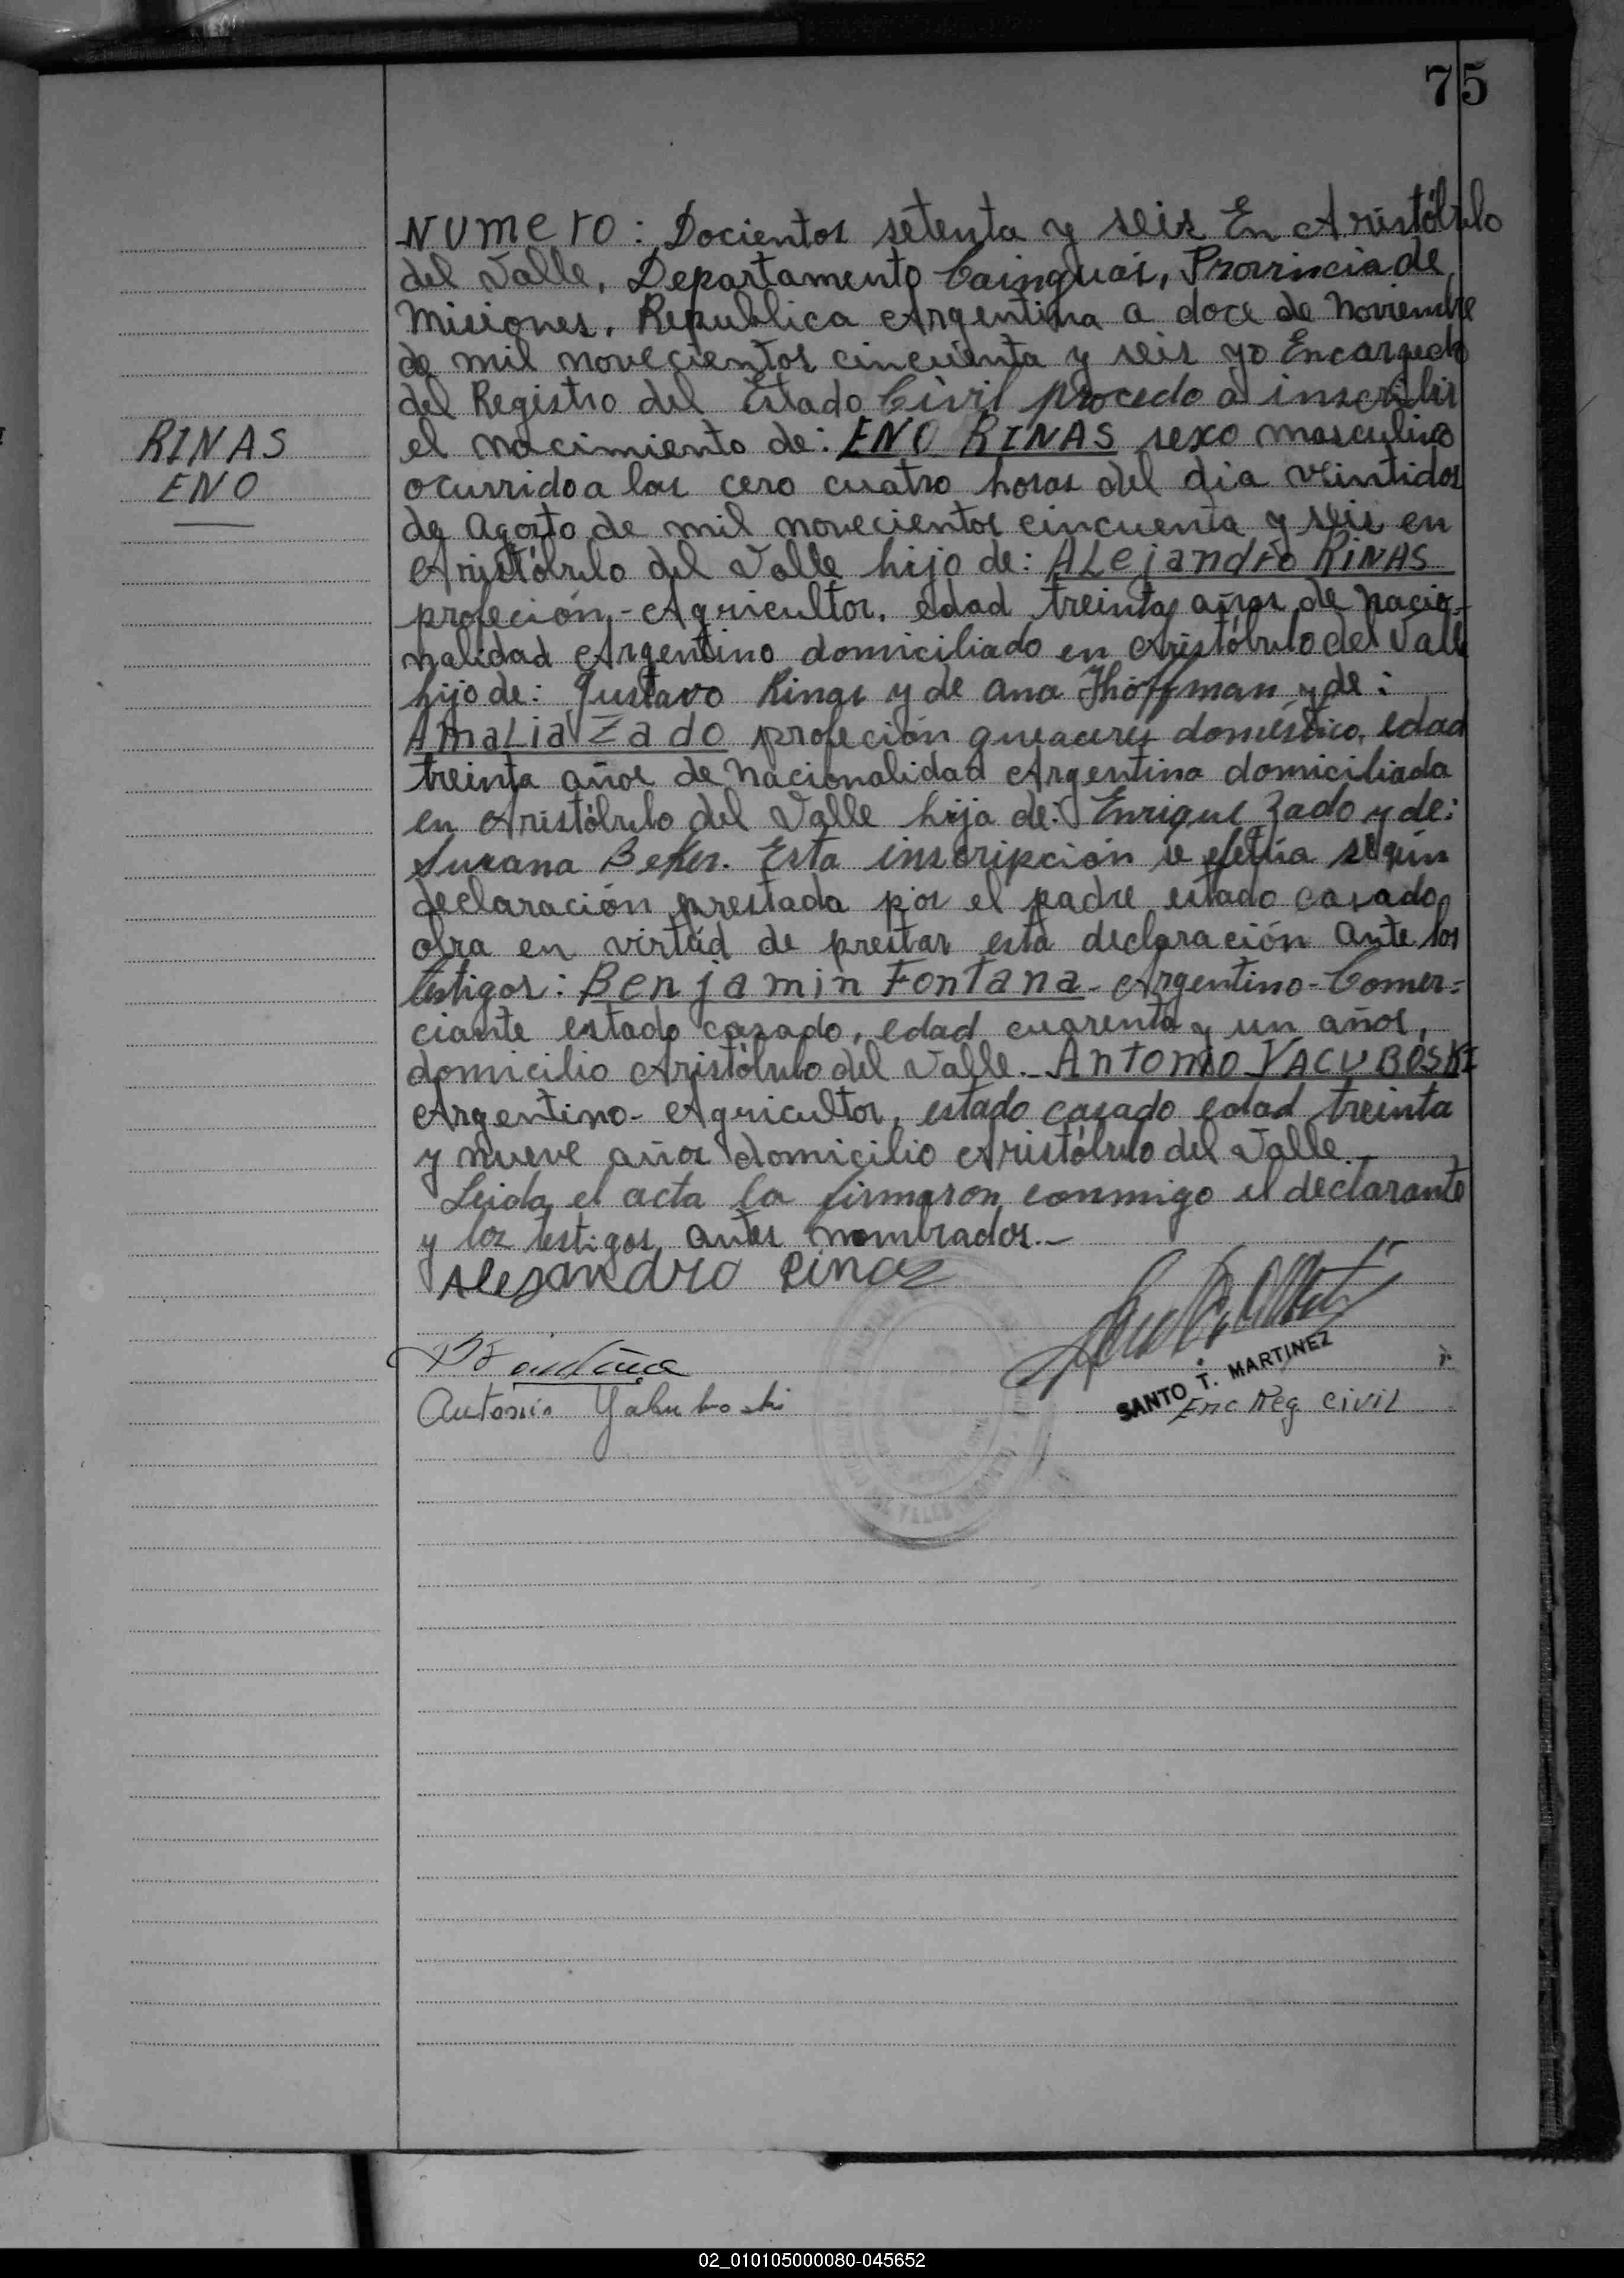 75
NUMERO: Docientos setenta y seis En Aristóbulo
del Valle, Departamento Cainguás, Provincia de
Misiones, Republica Argentina a doce de Noviembre
de mil novecientos cincuenta y seis yo Encargado
del Registro del Estado Civil procedo a inscribir
RINAS
ENO
el nacimiento de: ENO RINAS sexo masculino
ocurrido a las cero cuatro horas del dia veintidos
de Agosto de mil novecientos cincuenta y seis en
Aristóbulo del Valle hijo de: ALejandro RINAS
profeción-Agricultor, edad treinta años de nacio-
nalidad Argentino domiciliado en Aristóbulo del Valle
hijo de: Gustavo Rinas y de Ana Jhoffman y de:
AmaLia Zado profeción queaceres doméstico, edad
treinta años de Nacionalidad Argentina domiciliada
en Aristóbulo del Valle hija de: Enrique Zado y de:
Susana Beker. Esta inscripción se efetúa según
declaración prestada por el padre estado casado,
obra en virtúd de prestar esta declaración ante los
testigos: Benjamin Fontana-Argentino-Comer=
ciante estado casado, edad cuarenta y un años,
domicilio Aristóbulo del Valle.-ANTONIO YACUBOSKI
Argentino-Agricultor, estado casado edad treinta
y nueve años domicilio Aristóbulo del Valle.-
Leida el acta la firmaron conmigo el declarante
y los testigos antes nombrados.-
Alejandro Rinas
Antonio Yakuboski
SANTO T. MARTINEZ
Enc Reg Civil
02_010105000080-045652